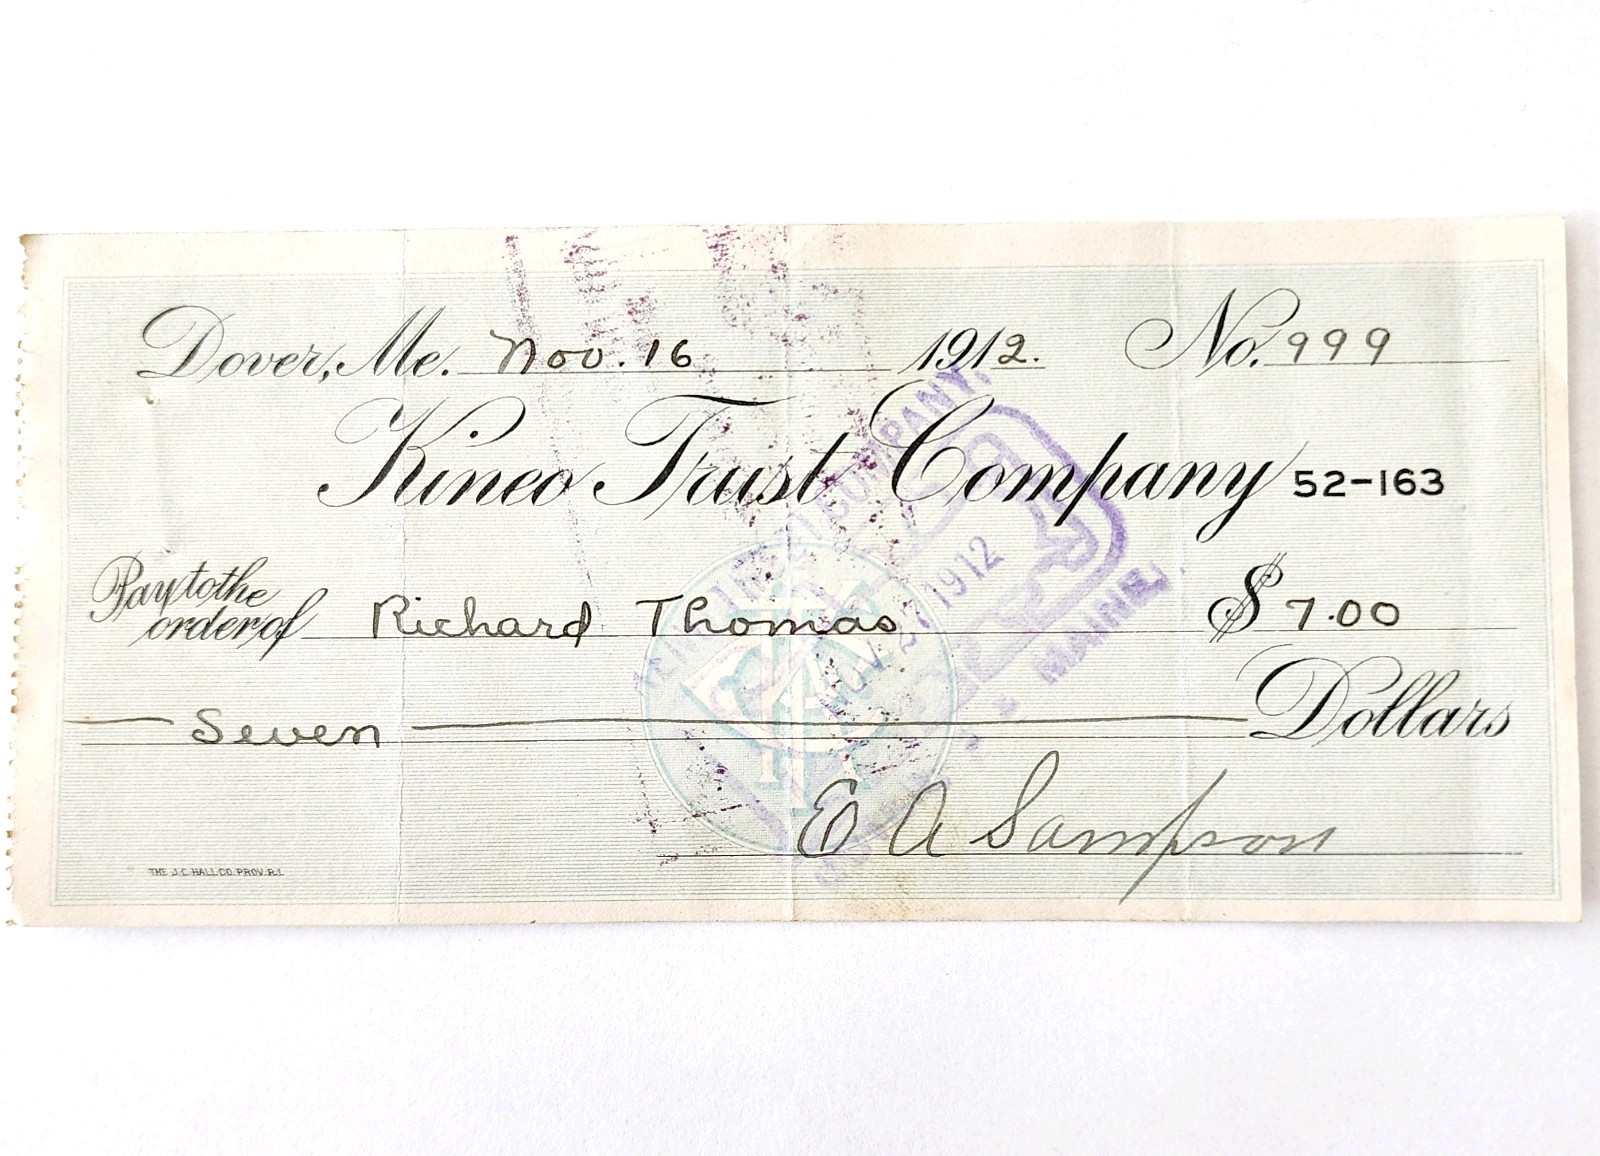 Dover, Me. Nov. 16 1912. No. 999
Kineo Trust Company 52-163
Pay to the
order of Richard Thomas $ 7.00
Seven Dollars
E A Sampson
THE J.C. HALL CO. PROV. R.I.
COMPANY.
1912
MAINE